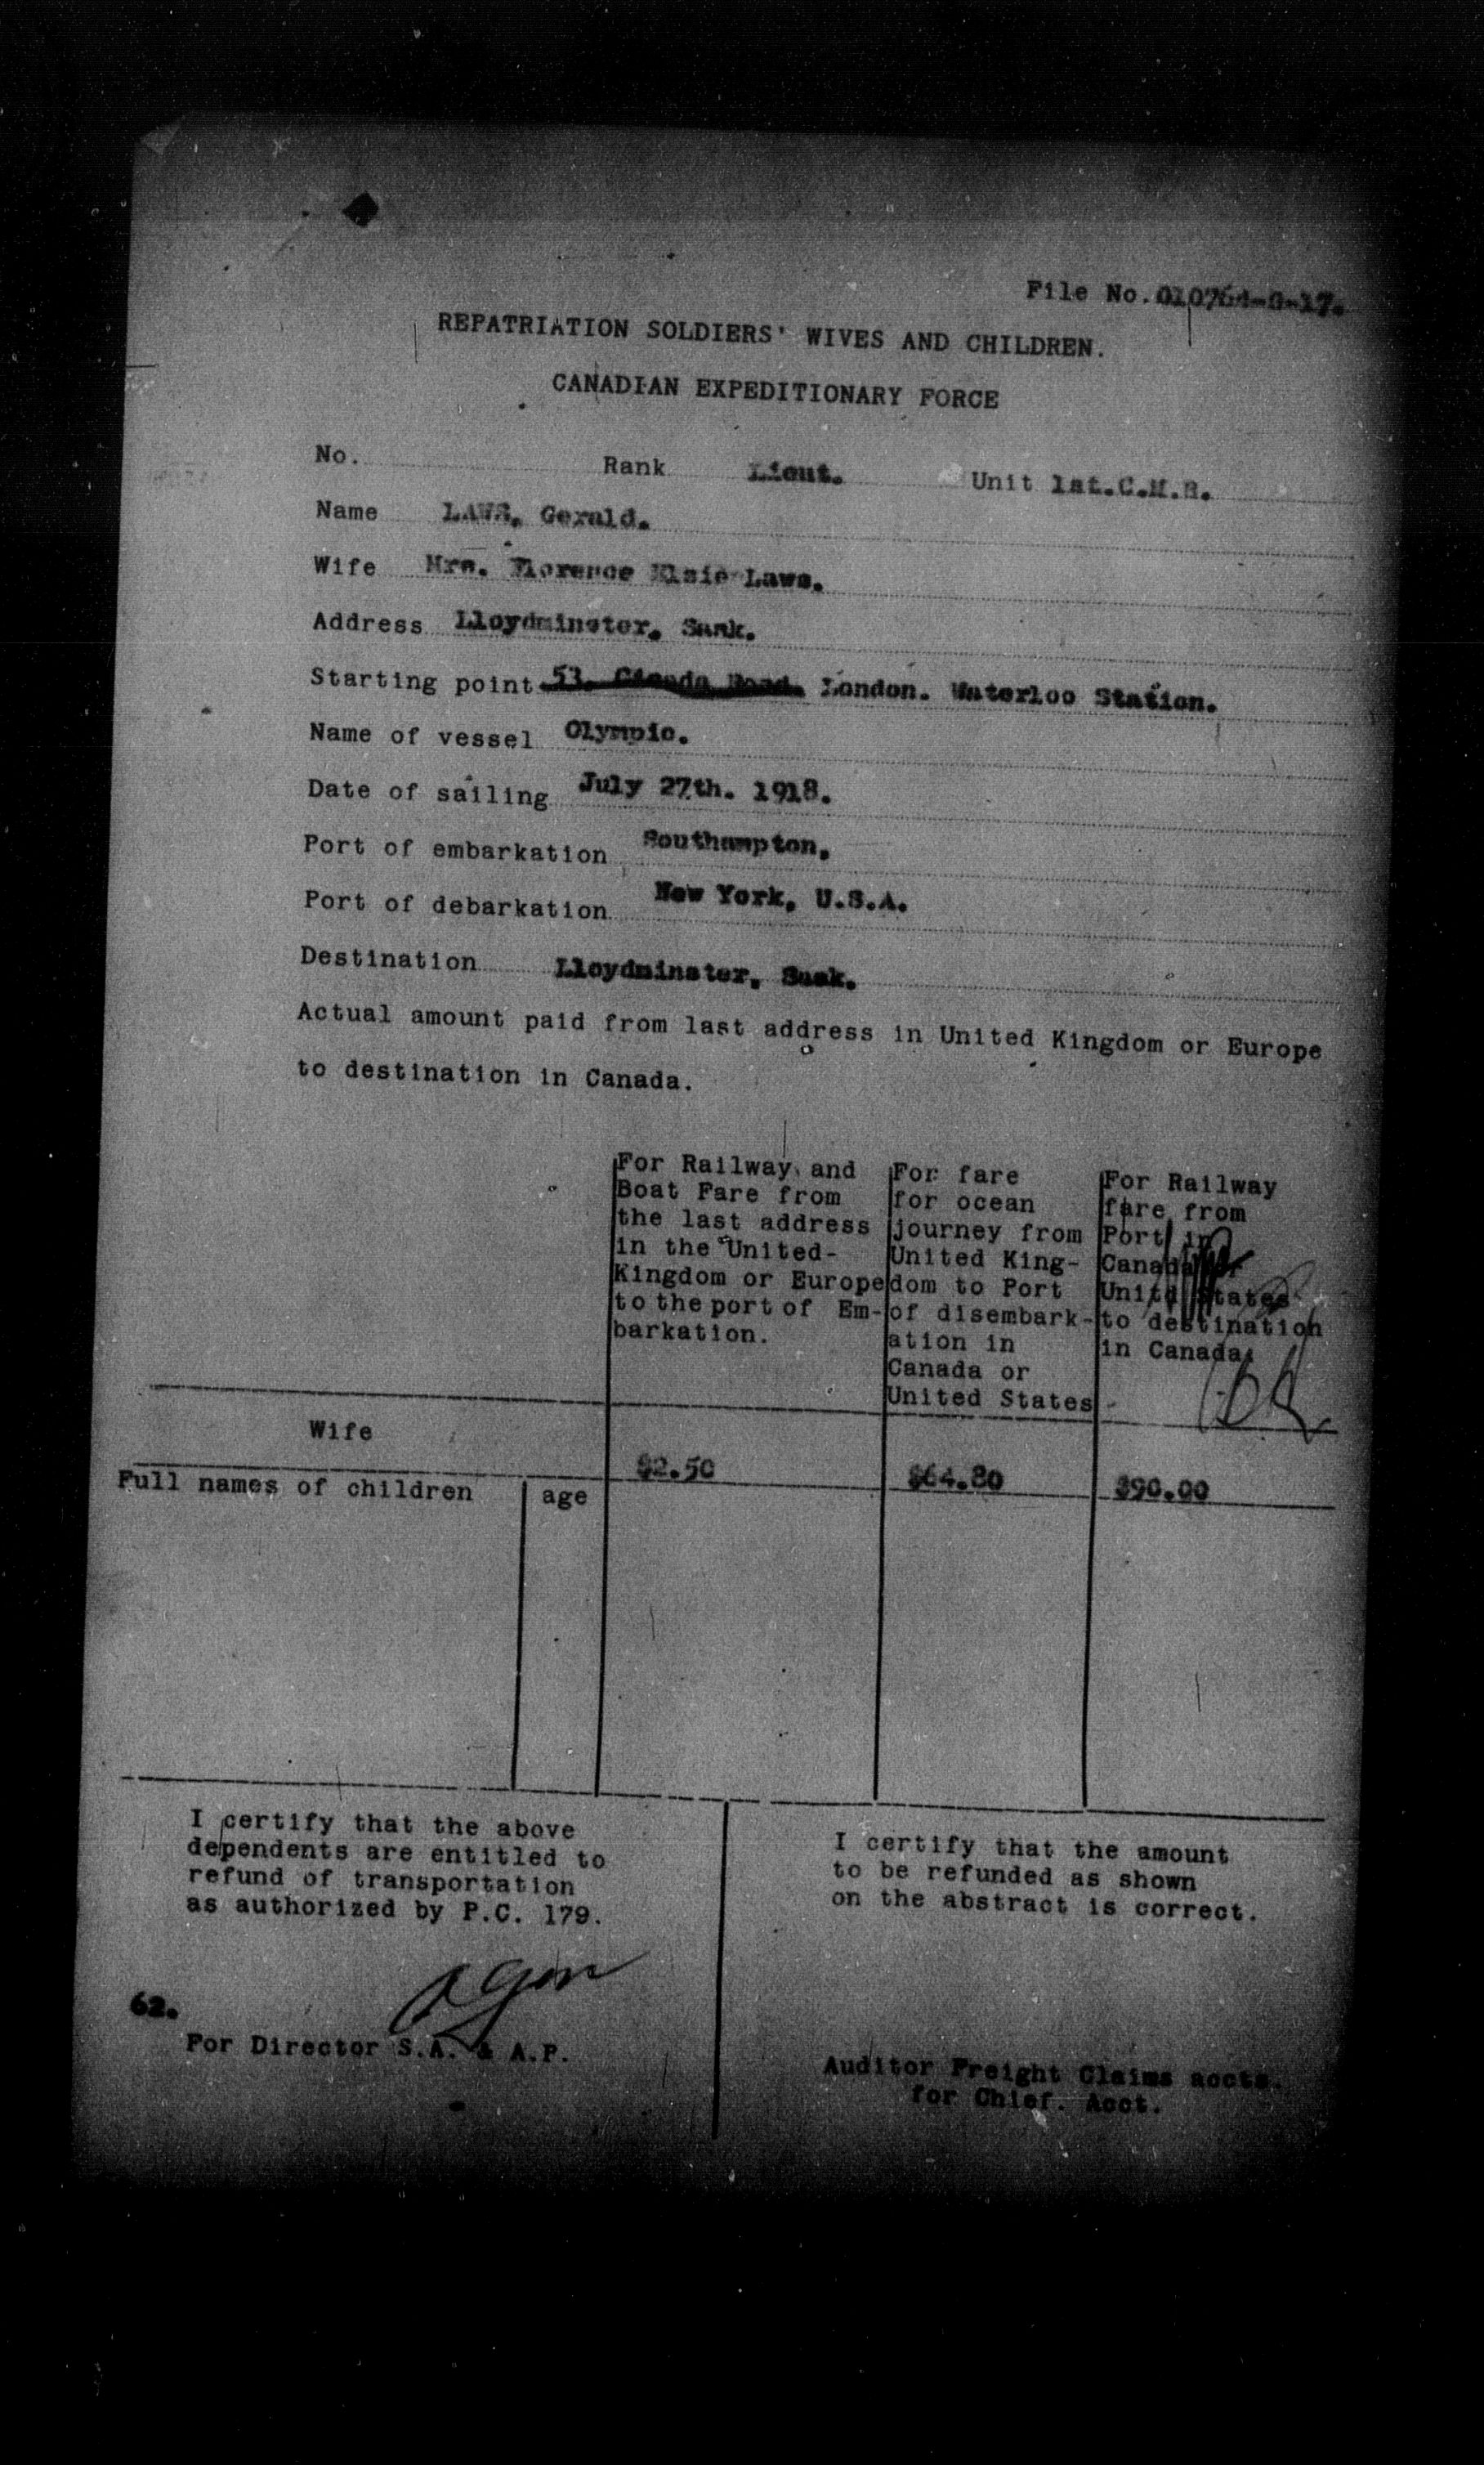 File No. 010764-G-17.
REPATRIATION SOLDIERS' WIVES AND CHILDREN.
CANADIAN EXPEDITIONARY FORCE
No. Rank Lieut. Unit 1st.C.M.R.
Name LAWS, Gerald.
Wife Mrs. Florence Elsie Laws.
Address Lloydminster, Sask.
Starting point 53, Road. London. Waterloo Station.
Name of vessel Olympic.
Date of sailing July 27th. 1918.
Port of embarkation Southampton.
Port of debarkation New York, U.S.A.
Destination Lloydminster, Sask.
Actual amount paid from last address in United Kingdom or Europe
to destination in Canada.
For Railway and
Boat Fare from
the last address
in the United-
Kingdom or Europe
to the port of Em-
barkation.
For fare
for ocean
journey from
United King-
dom to Port
of disembark-
ation in
Canada or
United States
For Railway
fare from
Port in
Canada or
Unitd States
to destination
in Canada.
Wife $2.50 $64.80 $90.00
Full names of children age
I certify that the above
dependents are entitled to
refund of transportation
as authorized by P.C. 179.
62.
For Director S.A. & A.P.
I certify that the amount
to be refunded as shown
on the abstract is correct.
Auditor Freight Claims accts.
for Chief. Acct.